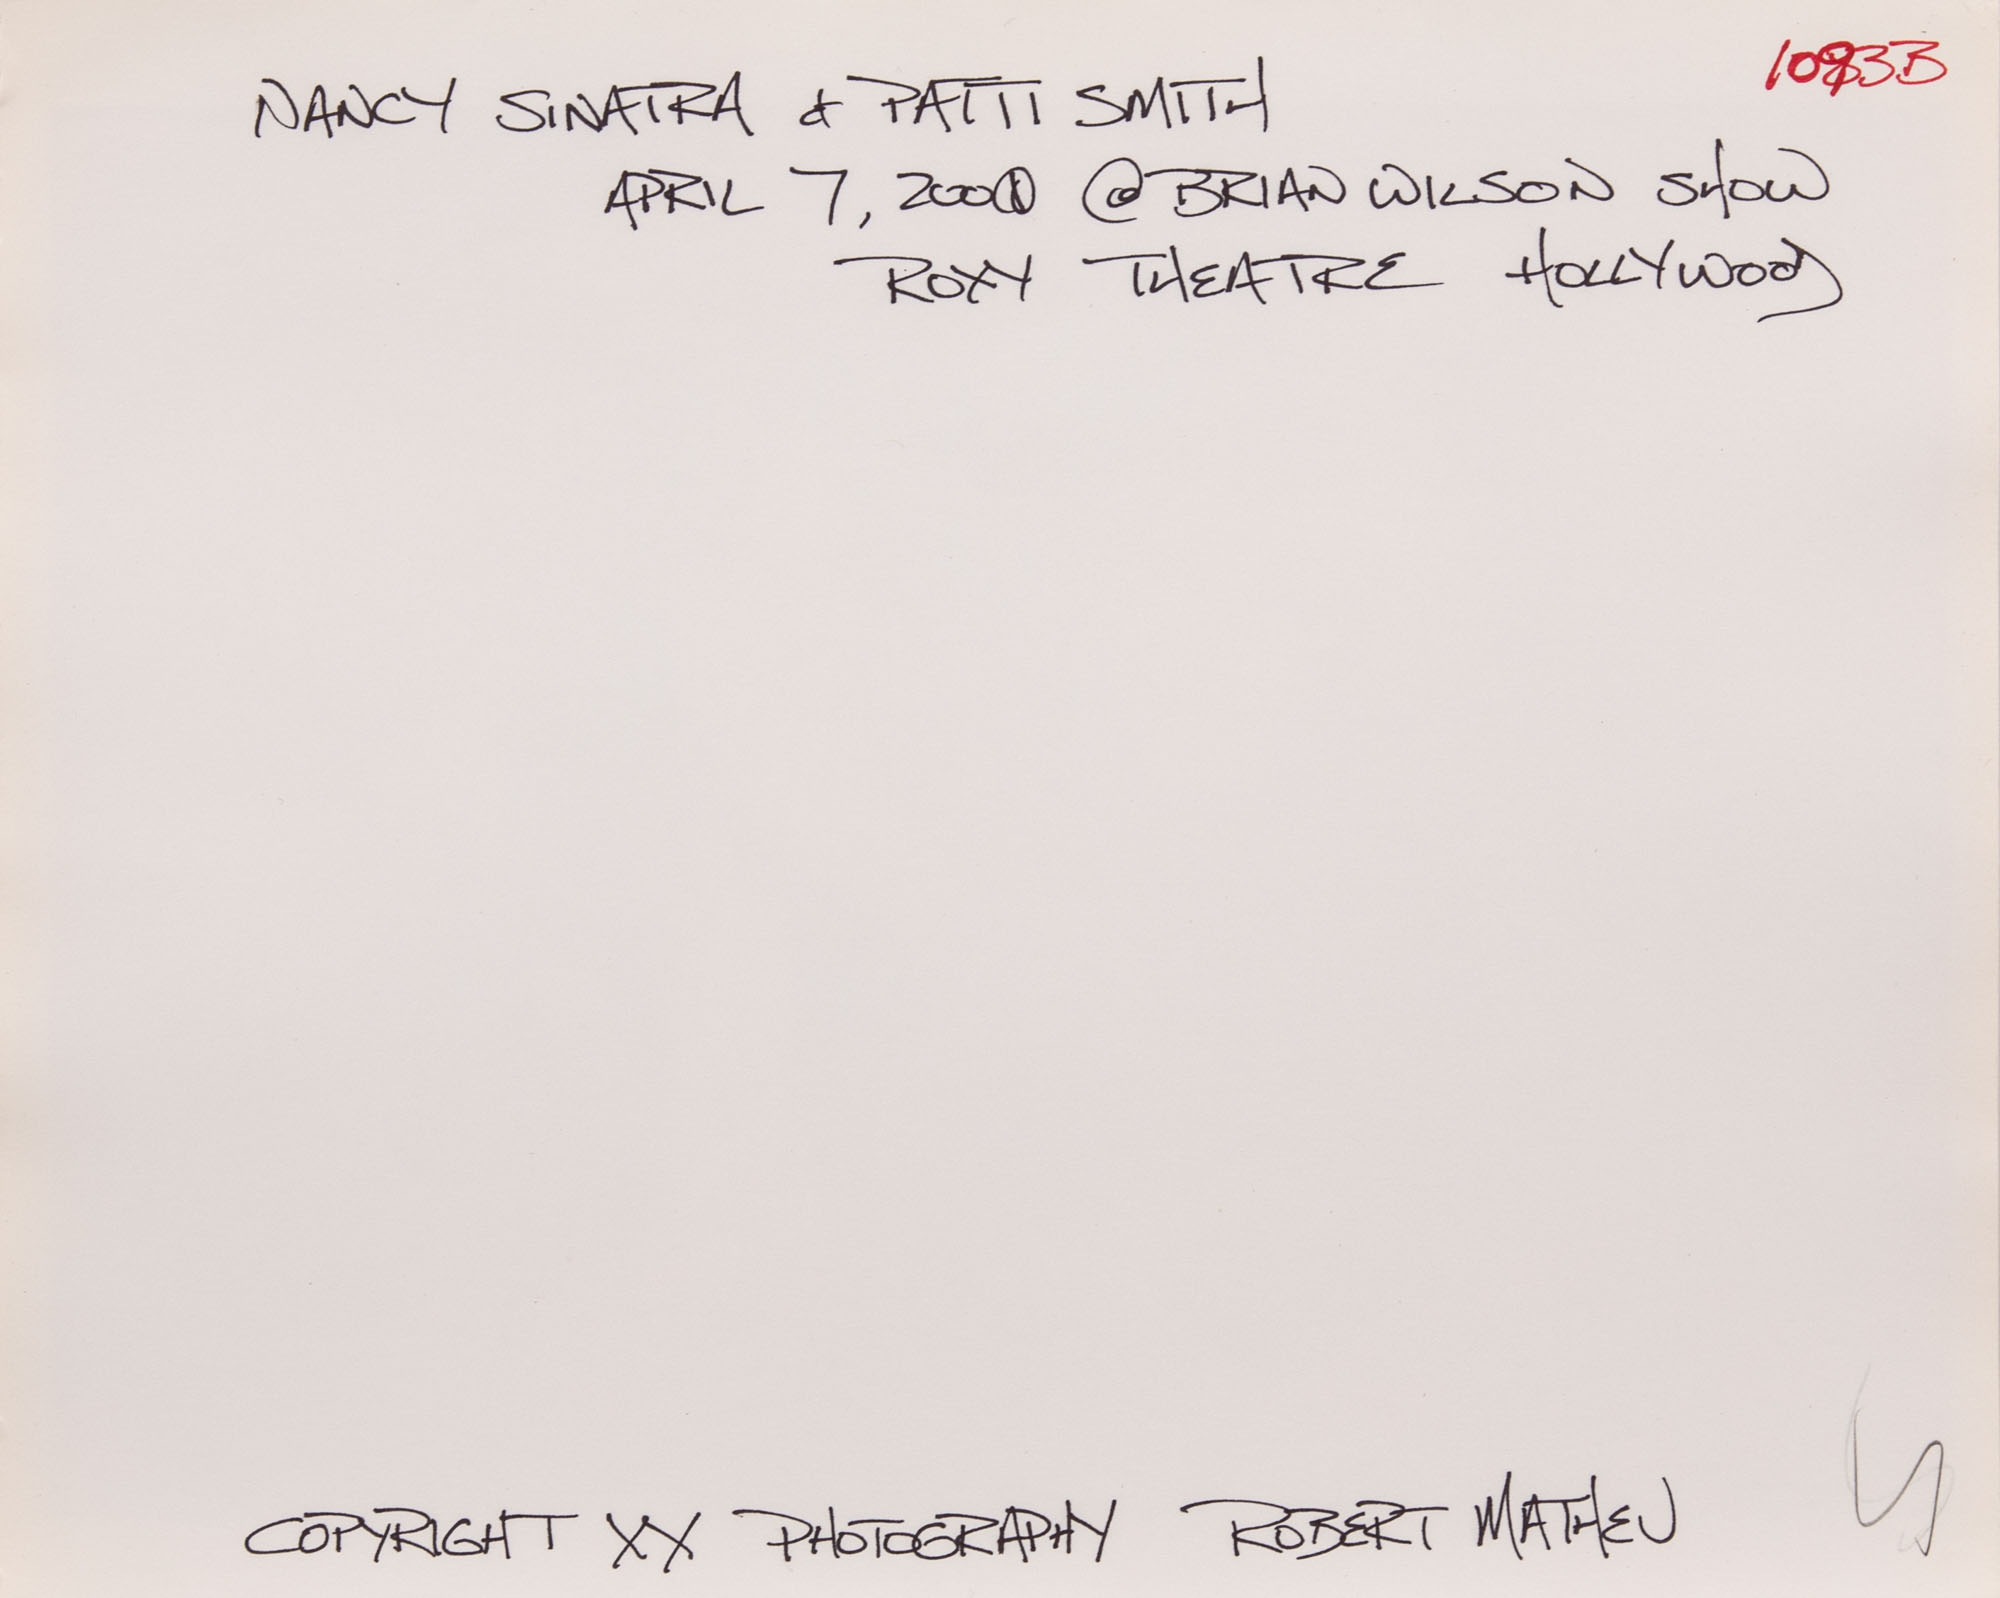 1093B
NANCY SINATRA & PATTI SMITH
APRIL 7, 2000 @ BRIAN WILSON SHOW
ROXY THEATRE HOLLYWOOD
COPYRIGHT XX PHOTOGRAPHY ROBERT MATHEU